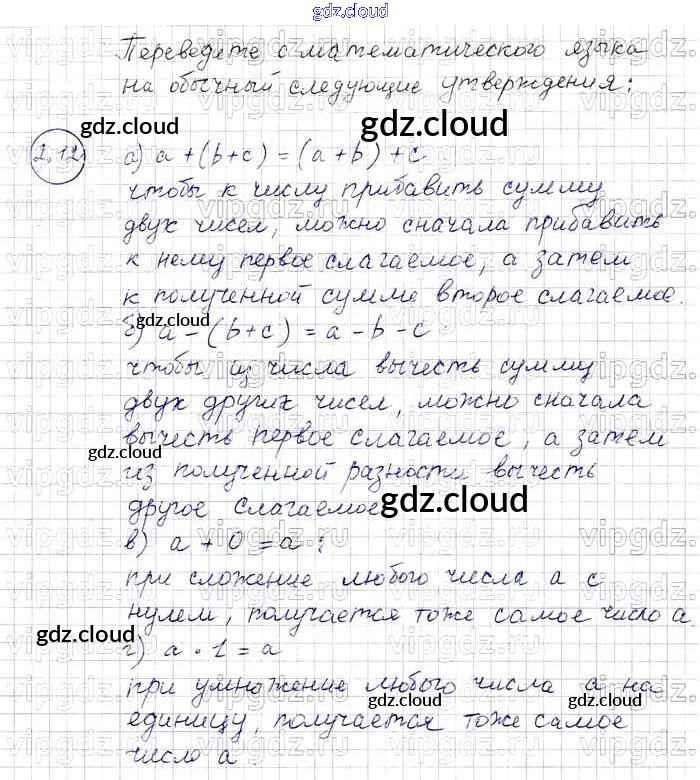 gdz.cloud
Переведете с математического языка
на обычный следующие утверждения:
2.12 а) a + (b + c) = (a + b) + c
чтобы к числу прибавить сумму
двух чисел, можно сначала прибавить
к нему первое слагаемое, а затем
к полученной сумме второе слагаемое.
б) a - (b + c) = a - b - c
чтобы из числа вычесть сумму
двух других чисел, можно сначала
вычесть первое слагаемое, а затем
из полученной разности вычесть
другое слагаемое
в) a + 0 = a :
при сложение любого числа a с
нулем, получается тоже самое число a
г) a · 1 = a
при умножение любого числа a на
единицу, получается тоже самое
число a